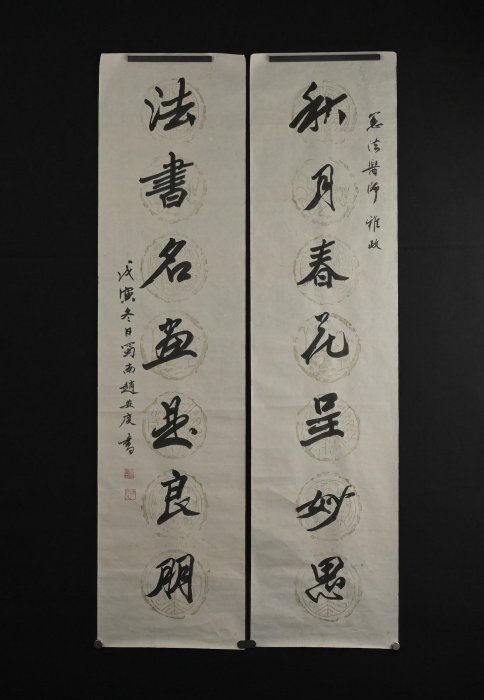 法醫師 雅政
秋月春花呈妙思
法書名畫是良朋
戊寅冬日蜀南趙安度書